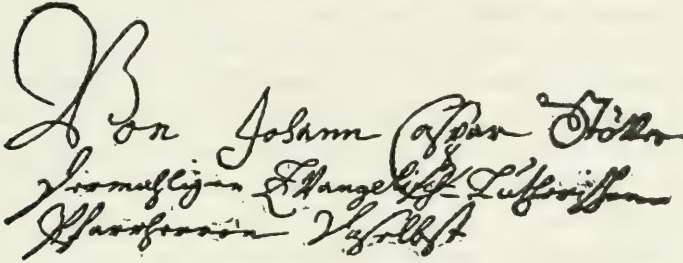 Von Johann Caspar Stöver
dermahligen Evangelisch-Lutherischen
Pfarrherren Daselbst